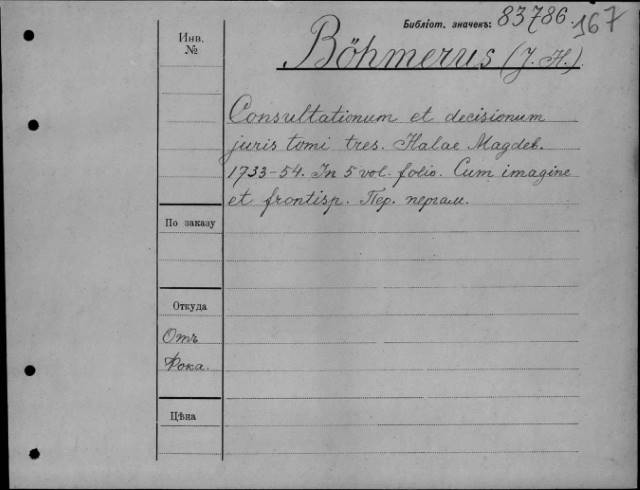 Библіот. значекъ: 83786. 167
Инв. №
Böhmerus (J. H.)
Consultationum et decisionum
juris tomi tres. Halae Magdeb.
1733-54. In 5 vol. folio. Cum imagine
et frontisp. Пер. пергам.
По заказу
Откуда
Отъ
Фока.
Цѣна